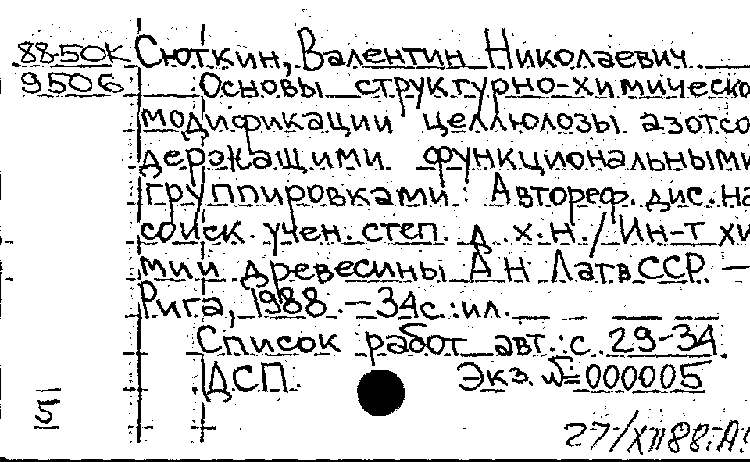 88-50к Сюткин, Валентин Николаевич
950б Основы структурно-химическо
модификации целлюлозы азотсо
держащими функциональными
группировками: Автореф. дис. на
соиск. учен. степ. д. х. н. / Ин-т хи
мии древесины АН ЛатвССР. —
Рига, 1988. — 34 с.: ил.
Список работ авт.: с. 29-34
ДСП. Экз. №=000005
5